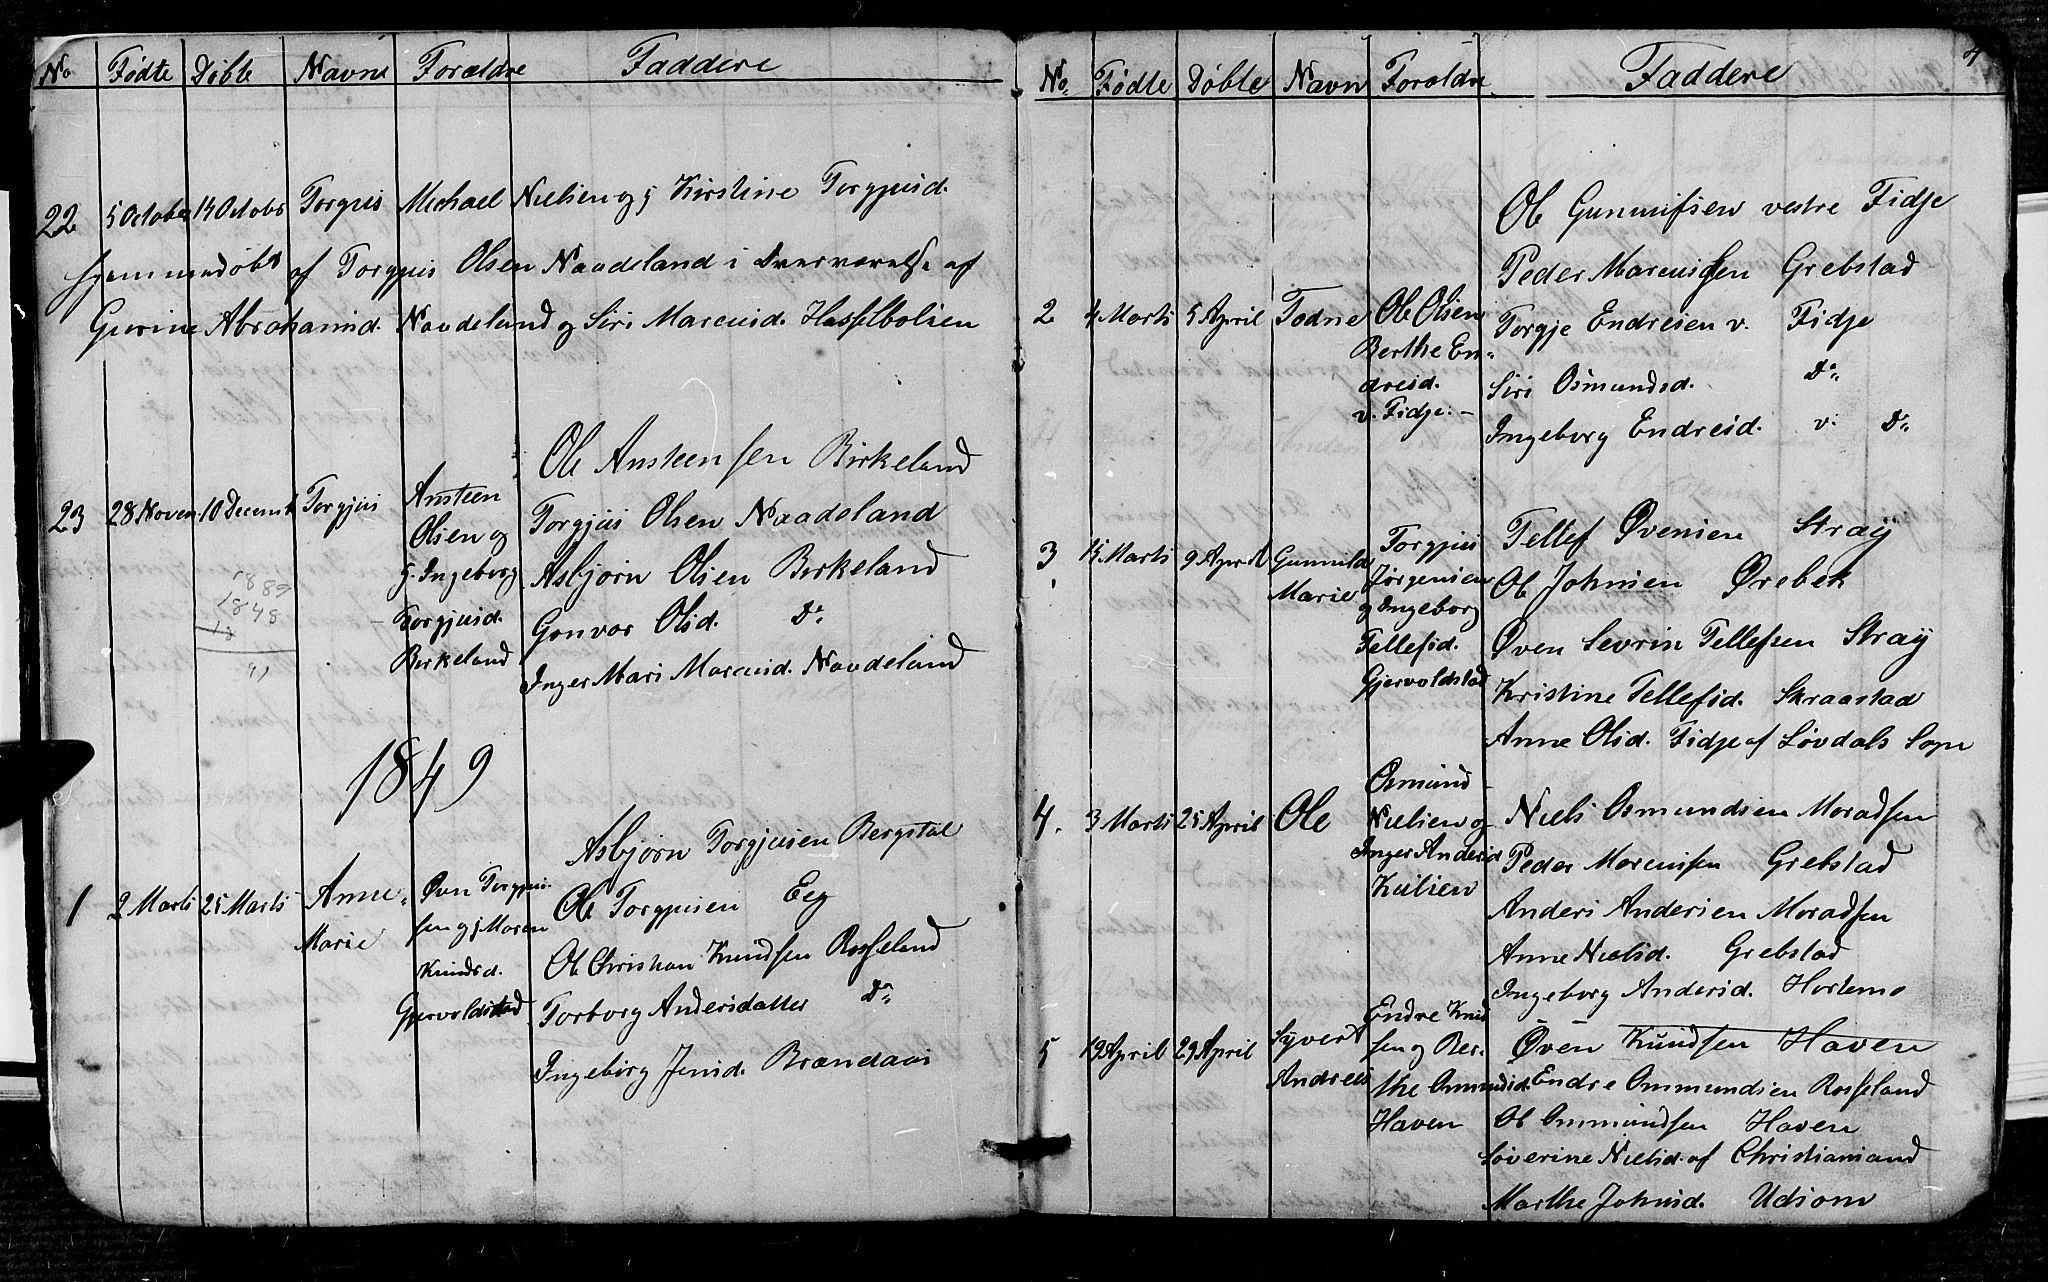 No Fødte Døbte Navne Forældre Faddere
22 5 October 14 Octobr Torgjus Michael Nielsen og Kirstine Torgjusd.
hjemmedøbt af Torgjus Olsen Naadeland i Overværelse af
Gurine Abrahamsd. Naadeland og Siri Marcusd. Hasselbolsen
23 28 Novem 10 Decemb Torgjus
Ansteen
Olsen og
g. Ingeborg
Torgjusd.
Birkeland
Ole Ansteensen Birkeland
Torgjus Olsen Naadeland
Asbjørn Olsen Birkeland
Gonvor Olsd. Do
Inger Mari Marcusd. Naadeland
1889
1848
41
1849
1 2 Marts 25 Marts Anne
Marie
Øven Torgjus-
sen og Maren
Knudsd.
Gjervoldstad
Asbjørn Torgjusen Bergstøl
Ole Torgjusen Eeg
Ole Christian Knudsen Rosseland
Torborg Andersdatter Do
Ingeborg Jensd. Brændaas
4
No. Fødte Døbte Navn Forældre Faddere
2 4 Marts 5 April Todne
Ole Olsen
Berthe En-
dresd.
v. Fidje.
Ole Gunnufsen vestre Fidje
Peder Marcussen Grebstad
Torgje Endresen v. Fidje
Siri Osmundsd. Do
Ingeborg Endresd. v. Do
3 15 Marts 9 April Gunnild
Marie
Torgjus
Jørgensen
og Ingeborg
Tellefsd.
Gjervoldstad
Tellef Øvensen Straÿ
Ole Johnsen Ørebek
Øven Sevrin Tellefsen Straÿ
Kristine Tellefsd. Skraastad
Anne Olsd. Fidje af Løvdals Sogn
4. 3 Marts 25 April Ole
Osmund
Nielsen og
Inger Andersd
Kulien
Niels Osmundsen Moradsen
Peder Marcussen Grebstad
Anders Andersen Moradsen
Anne Nielsd. Grebstad
Ingeborg Andersd. Hortemo
5 19 April 29 April Syvert
Andreas
Endre Knud
sen og Ber-
the Ommundsd.
Haven
Øven Knudsen Haven
Endre Ommundsen Rosseland
Ole Ommundsen Haven
Søverine Nielsd. af Christiansand
Marthe Johnsd. Udsom